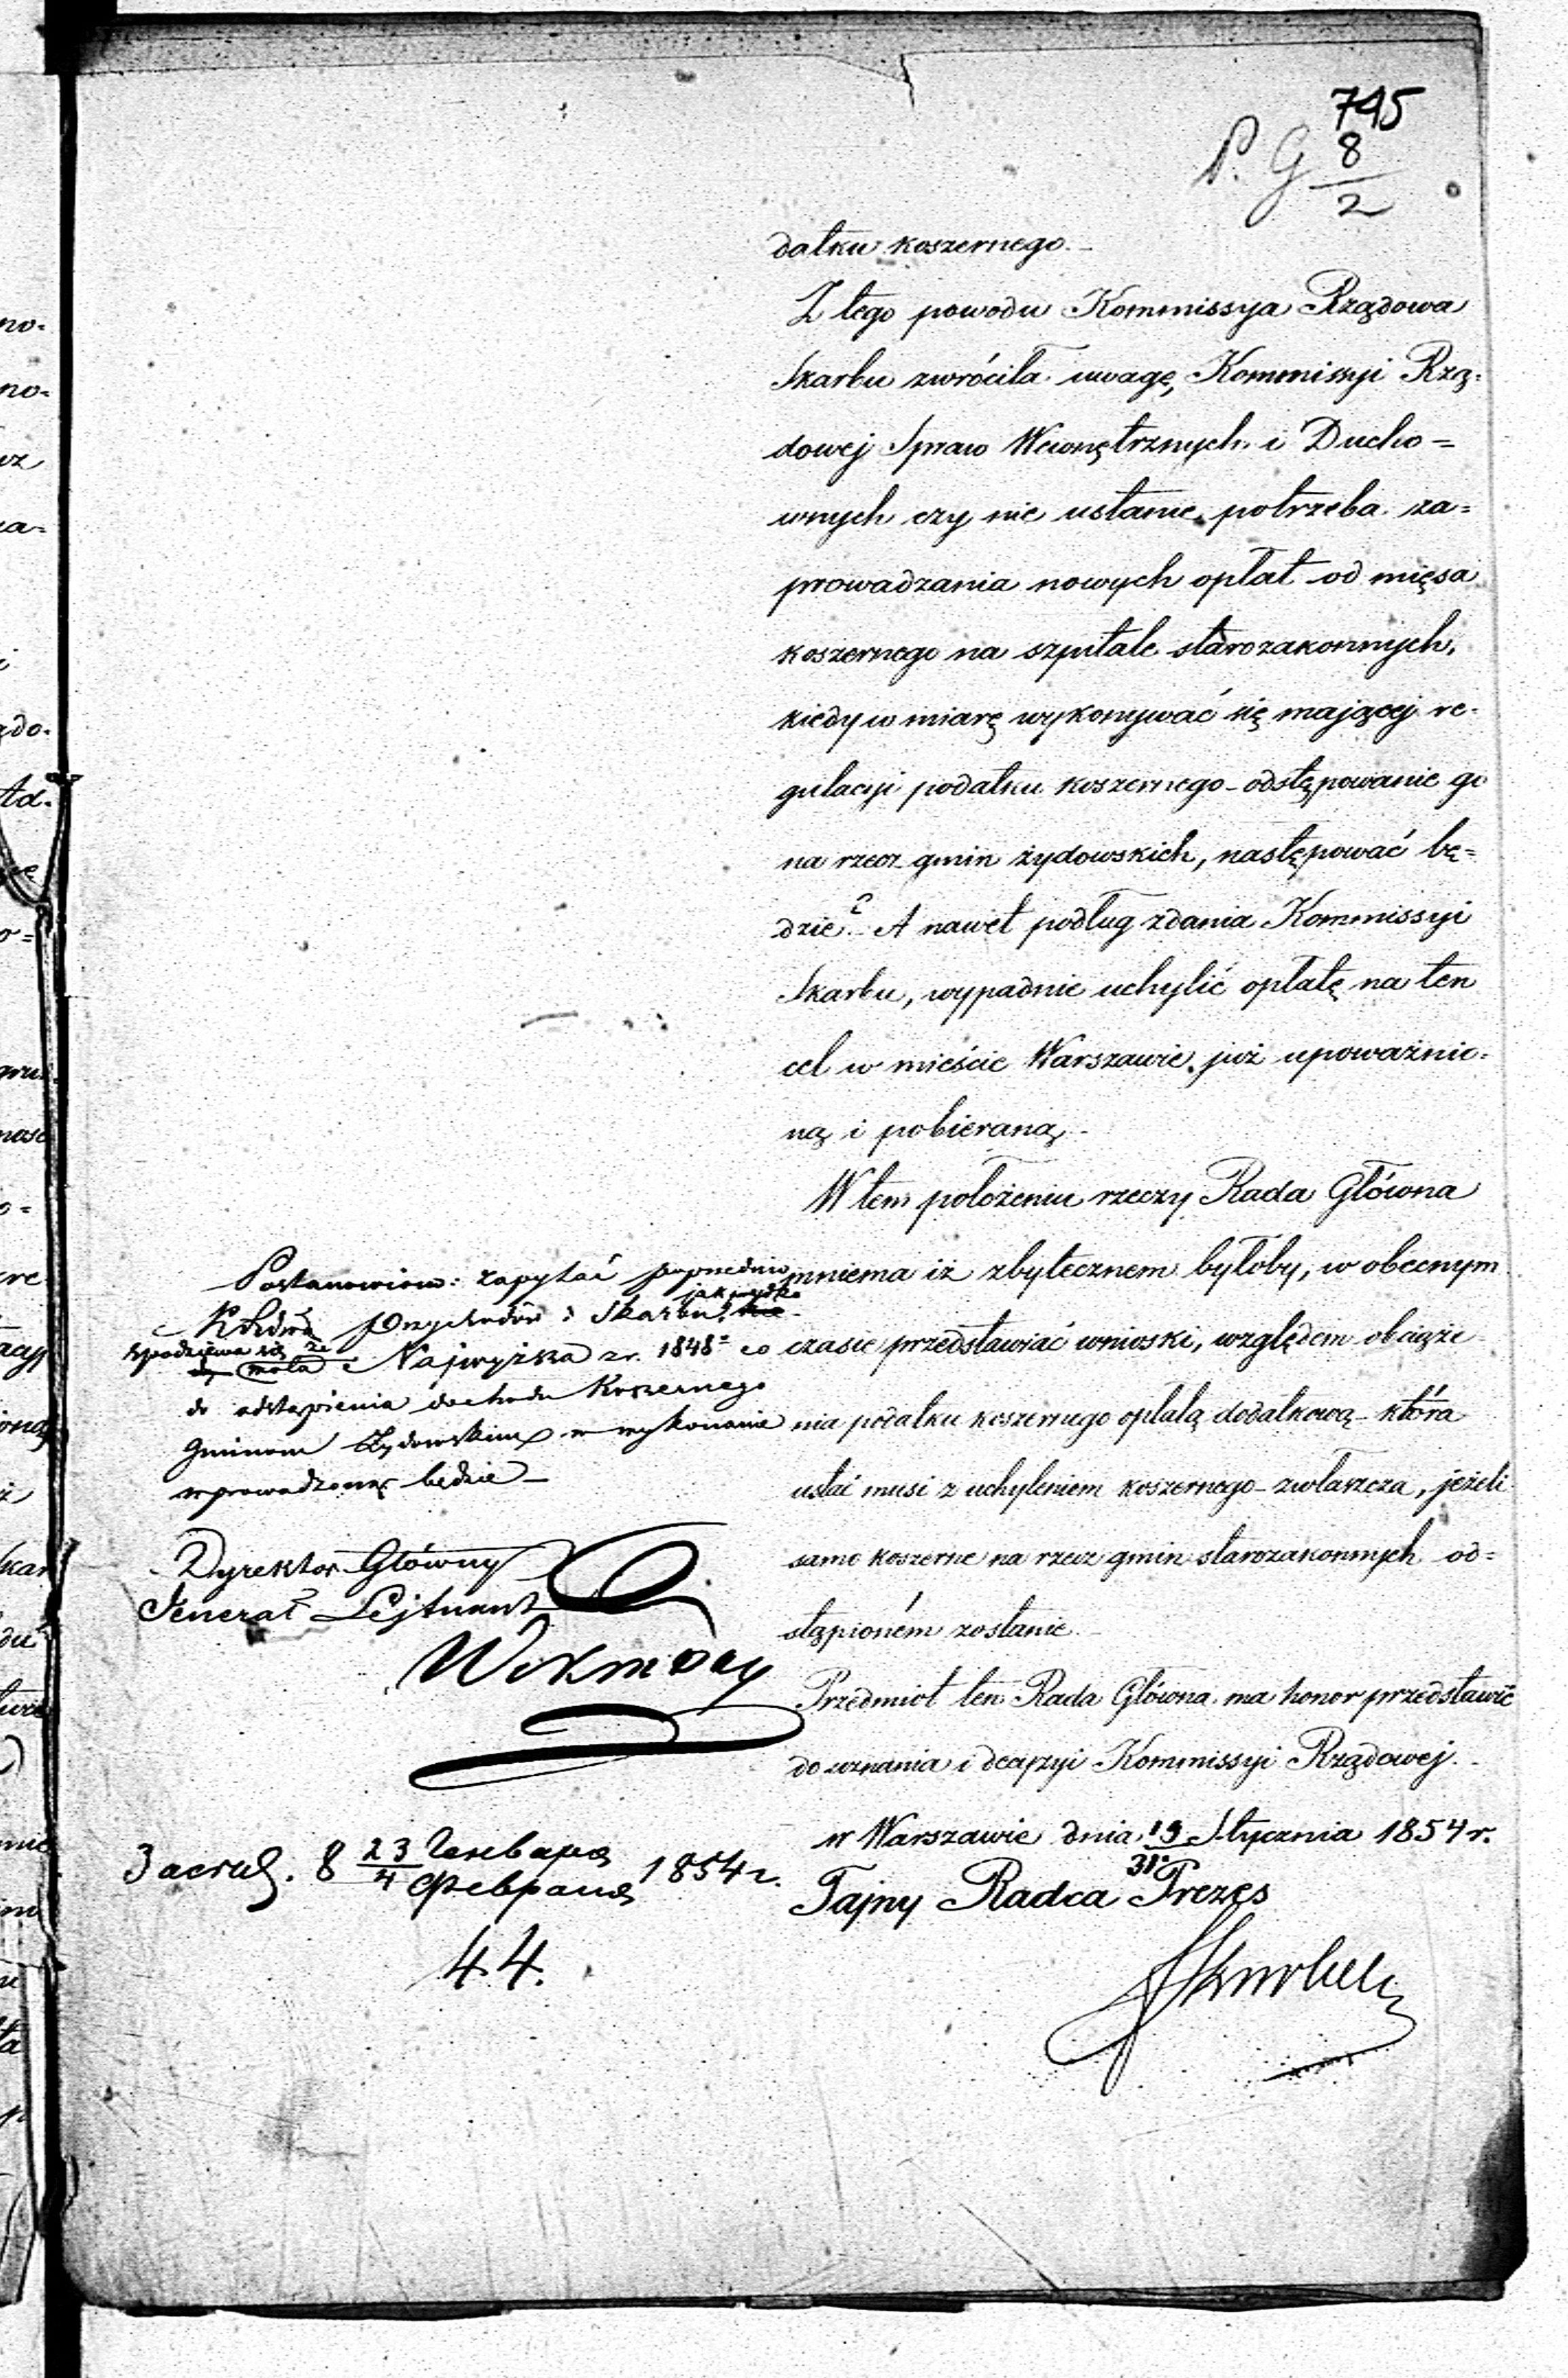 745
P. G 8/2
datku koszernego.-
Z tego powodu Kommissya Rządowa
Skarbu zwróciła uwagę, Kommissyi Rzą=
dowej Spraw Wewnętrznych i Ducho=
wnych czy nie ustanie potrzeba za=
prowadzania nowych opłat od mięsa
koszernego na szpitale starozakonnych,
kiedy w miarę wykonywać się mającej re-
gulacyi podatku koszernego - odstępowanie go
na rzecz gmin żydowskich, następować bę=
dzie? - A nawet podług zdania Kommissyi
Skarbu, wypadnie uchylić opłatę na ten
cel w mieście Warszawie, już upoważnio=
ną i pobieraną.-
W tem położeniu rzeczy Rada Główna
mniema iż zbytecznem byłoby, w obecnym
czasie przedstawiać wnioski, względem obciąże
nia podatku koszernego opłatą dodatkową - która
ustać musi z uchyleniem koszernego - zwłaszcza, jeżeli
samo koszerne na rzecz gmin starozakonnych od=
stąpioném zostanie.-
Przedmiot ten Rada Główna ma honor przedstawić
do uznania i decyzyi Kommissyi Rządowej.-
w Warszawie dnia 19/31 Stycznia 1854 r.
Tajny Radca Prezes
Postanowiono: zapytać poprzednio
Przychodów i Skarbu, jak
spodziewa się że Najwyższa z r. 1848 co
do odstąpienia dochodu Koszernego
Gminom Żydowskim w wykonanie
wprowadzoną będzie -
Dyrektor Główny
Jenerał Lejtnant
Засѣд. 8 23 Генваря / 4 Февраля 1854 г.
44.